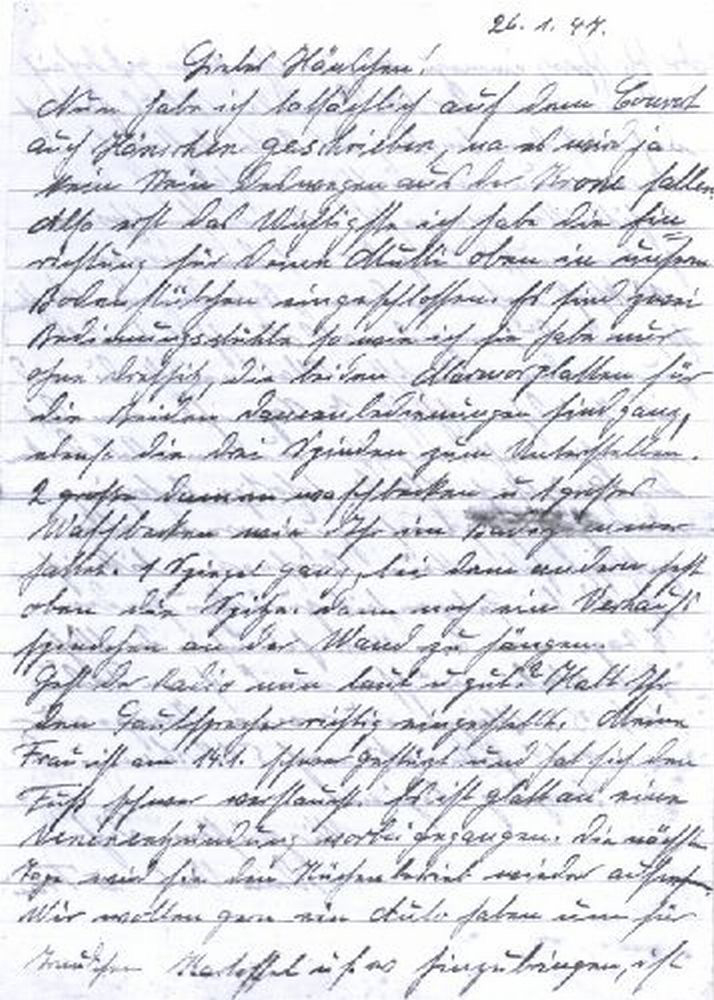 26. 1. 47.
Liebes Hänschen!
Nun habe ich tatsächlich auf dem Couvert
auch Hänschen geschrieben, na es wird ja
kein Stein deswegen aus der Krone fallen
Also erst das Wichtigste ich habe die Ein
richtung für Deine Mutti oben in unserm
Bodenstübchen eingeschlossen. Es sind zwei
Bedienungsstühle so wie ich sie habe nur
ohne Drehsitz, die beiden Marmorplatten für
die beiden Damenbedienungen sind ganz,
ebenso die drei Spinden zum Unterstellen.
2 große Damenwaschbecken u 1 großes
Waschbecken wie Ihr im
hattet. 1 Spiegel ganz, bei dem andern fehlt
oben die Spitze. dann noch ein Verkaufs
spindchen an der Wand zu hängen.
Geht der Radio nun laut u gut? Habt Ihr
den Lautsprecher richtig eingestellt. Meine
Frau ist am 14.1. schwer gestürzt und hat sich den
Fuß schwer verstaucht. Es ist glatt an eine
Venenentzündung vorbeigegangen. Die nächsten
Tage wird sie den Küchenbetrieb wieder aufnehmen.
Wir wollten gern ein Auto haben um für
Kartoffel usw hinzubringen, ist